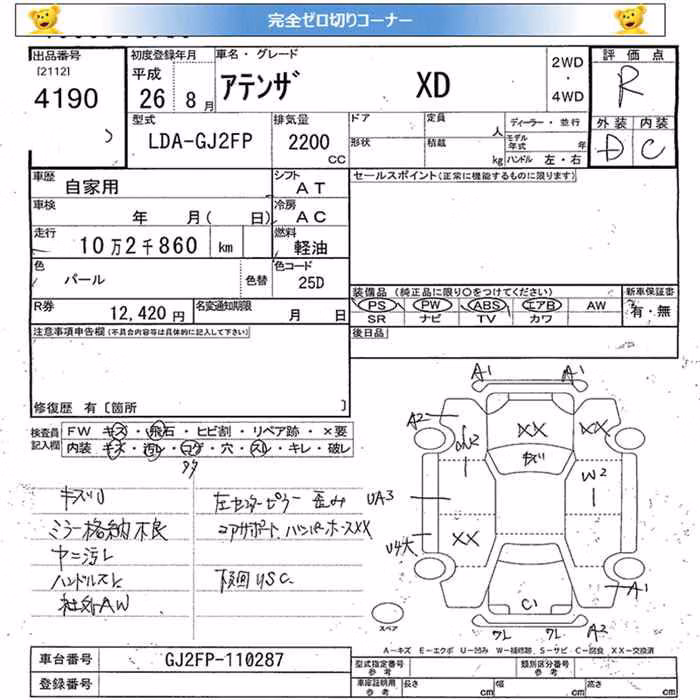 完全ゼロ切りコーナー
出品番号
[2112]
4190
初度登録年月
平成
26 8月
車名・グレード
アテンザ XD
2WD
・
4WD
評価点
R
外装 内装
D C
型式
LDA-GJ2FP
排気量
2200
CC
ドア
形状
定員
人
積載
kg
ディーラー・並行
モデル年式 年
ハンドル 左・右
車歴
自家用
シフト
AT
セールスポイント(正常に機能するものに限ります)
車検
年 月( 日)
冷房
AC
走行
10万2千860 km
燃料
軽油
色
パール
色替
色コード
25D
装備品 (純正品に限り○をつけてください)
新車保証書
有・無
PS PW ABS エアB AW
SR ナビ TV カワ
R券
12,420円
名変通知期限
月 日
注意事項申告欄(不具合内容等は具体的に記入して下さい)
後日品
修復歴 有〔箇所 〕
検査員記入欄
FW キズ・飛石・ヒビ割・リペア跡・×要
内装 キズ・汚レ・コゲ・穴・スレ・キレ・破レ
キズリ
ミラー格納不良
ヤニ汚レ
ハンドルスレ
社外AW
左センターピラー歪み
コアサポート、バンパーホースXX
下回りUSC
A1 A1
A2
XX
XX
キズリ
W2
UA3
XX
U4大
A1
C1
ワレ ワレ A2
スペア
A-キズ E-エクボ U-凹み W-補修跡 S-サビ C-腐食 XX-交換済
車台番号
GJ2FP-110287
登録番号
型式指定番号
参考
類別区分番号
参考
車庫証明用
参考
長さ cm
幅 cm
高さ cm